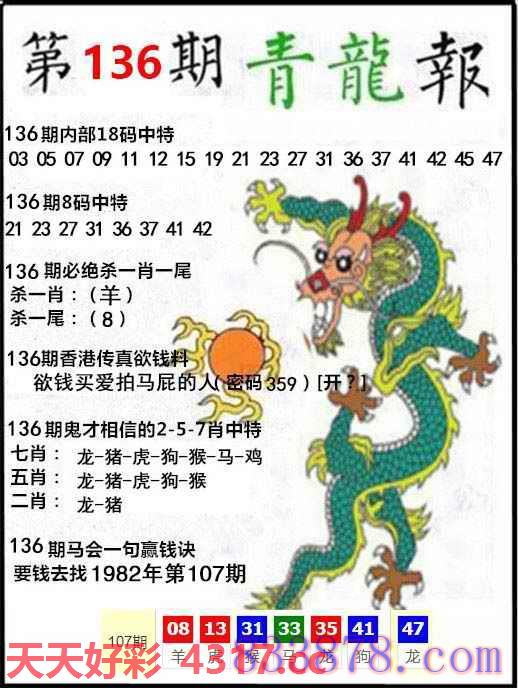 第136期青龍報
136期内部18码中特
03 05 07 09 11 12 15 19 21 23 27 31 36 37 41 42 45 47
136期8码中特
21 23 27 31 36 37 41 42
136期必绝杀一肖一尾
杀一肖：（羊）
杀一尾：（8）
136期香港传真欲钱料
欲钱买爱拍马屁的人（密码359）[开？]
136期鬼才相信的2-5-7肖中特
七肖： 龙-猪-虎-狗-猴-马-鸡
五肖： 龙-猪-虎-狗-猴
二肖： 龙-猪
136期马会一句赢钱诀
要钱去找1982年第107期
107期 08 13 31 33 35 41 47
羊 虎 猴 马 龙 狗 龙
天天好彩 4317.cc